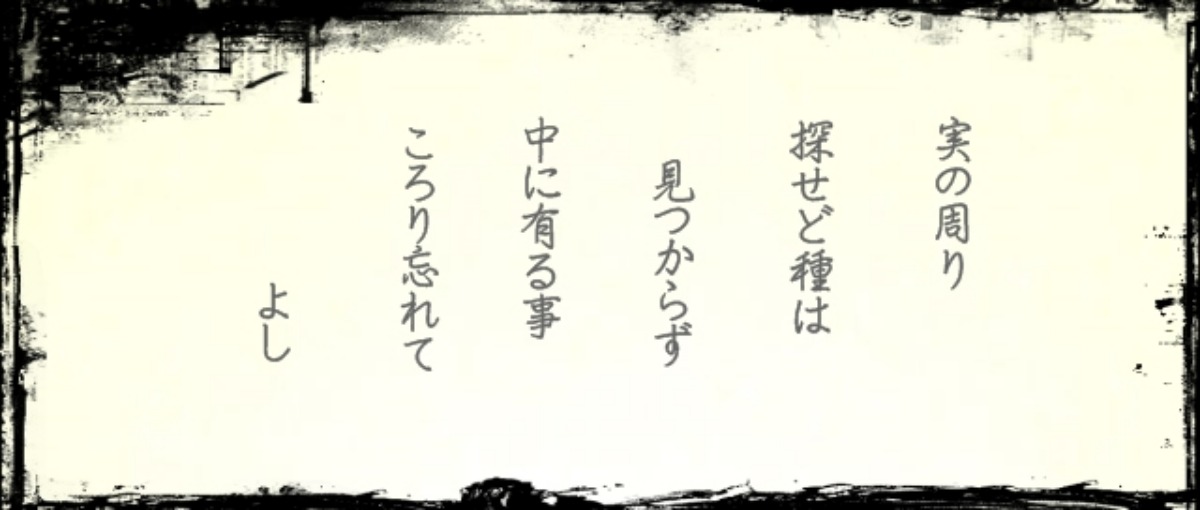 実の周り
探せど種は
見つからず
中に有る事
ころり忘れて
よし